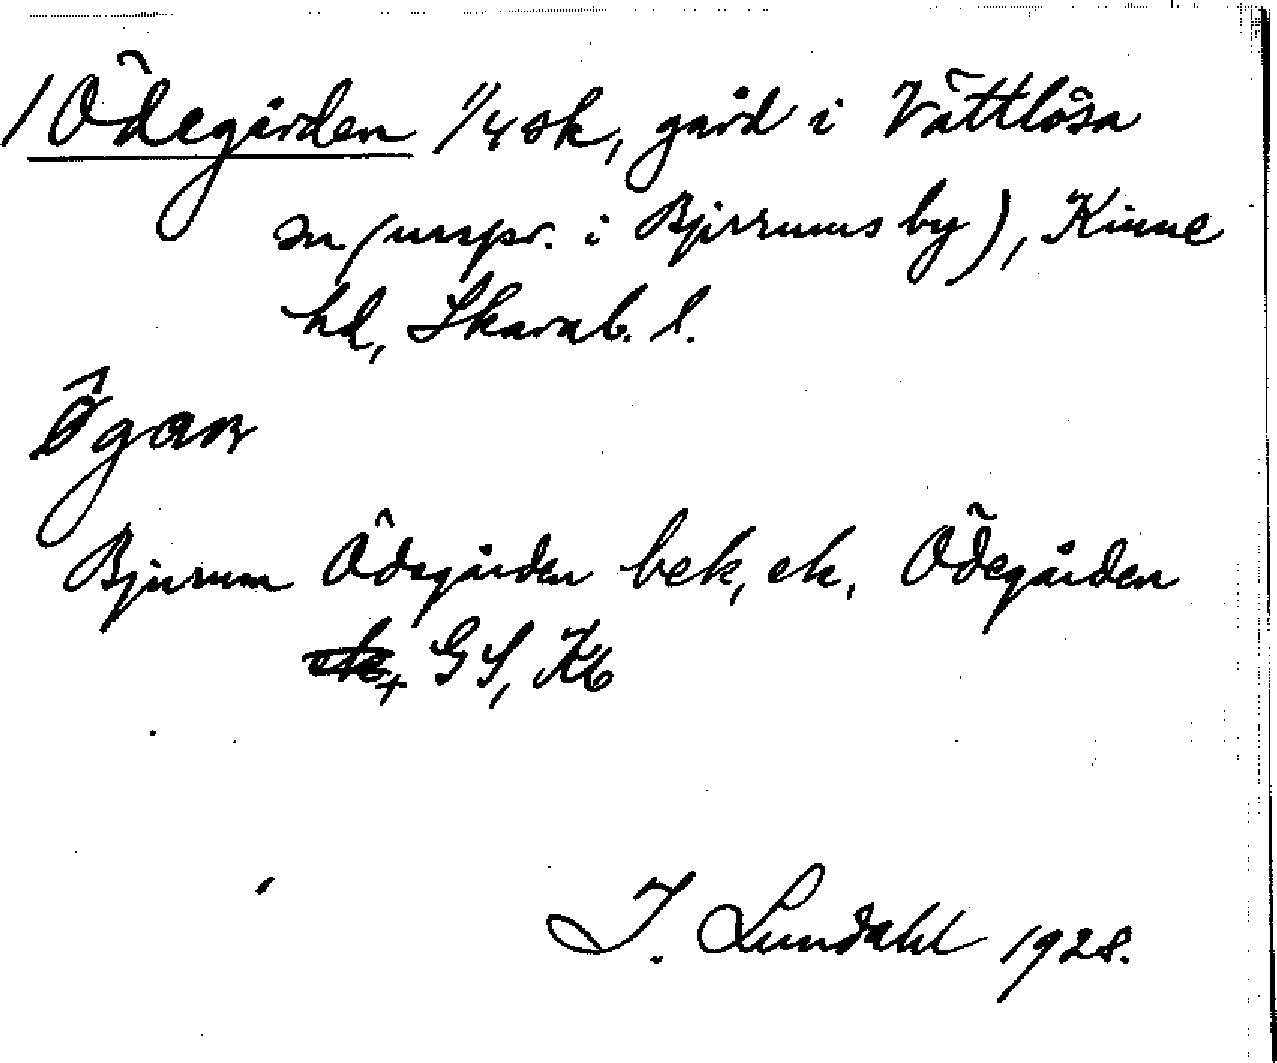 /Ödegården 1/4 sk, gård i Vättlösa
sn (urspr. i Bjurums by), Kinne
hd, Skarab. l.
Bjurum Ödegården bek, ek, Ödegården
GS, Kb
I. Lundahl 1928.